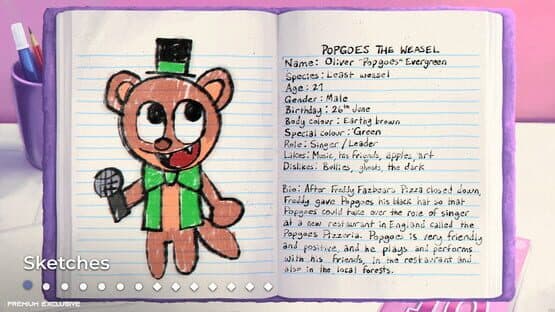 POPGOES THE WEASEL
Name: Oliver "Popgoes" Evergreen
Species: Least weasel
Age: 21
Gender: Male
Birthday: 26th June
Body colour: Earthy brown
Special colour: Green
Role: Singer/Leader
Likes: Music, his friends, apples, art
Dislikes: Bullies, ghosts, the dark
Bio: After Freddy Fazbear's Pizza closed down,
Freddy gave Popgoes his black hat so that
Popgoes could take over the role of singer
at a new restaurant in England called the
Popgoes Pizzeria. Popgoes is very friendly
and positive, and he plays and performs
with his friends, in the restaurant and
also in the local forests.
Sketches
PREMIUM EXCLUSIVE